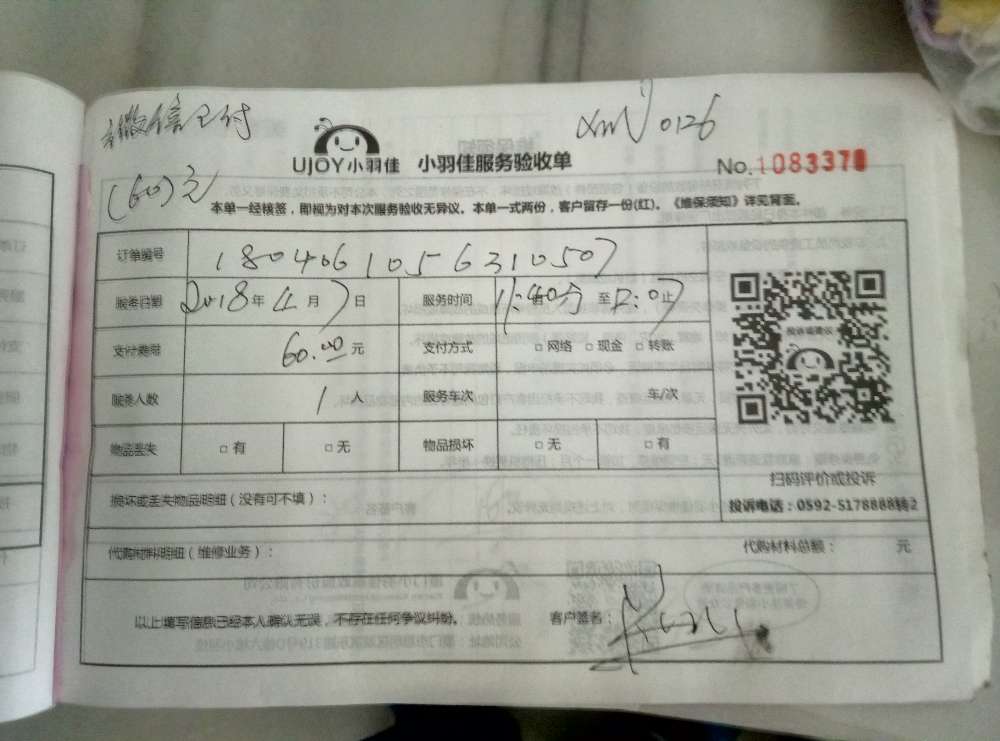 微信支付
XMN 0126
UJOY小羽佳 小羽佳服务验收单
No.1083378
(60)元
本单一经核签，即视为对本次服务验收无异议。本单一式两份，客户留存一份(红)。《维保须知》详见背面。
订单编号 1804061056310507
服务日期 2018年4月7日 服务时间 11:40分至12:07止
支付费用 60.00元 支付方式 □网络 □现金 □转账
服务人数 1人 服务车次 车/次
物品丢失 □有 □无 物品损坏 □无 □有
投诉或建议
扫码评价或投诉
损坏或丢失物品明细（没有可不填）：
投诉电话：0592-5178888转2
代购材料明细（维修业务）： 代购材料总额： 元
以上填写信息已经本人确认无误，不存在任何争议纠纷。 客户签名：